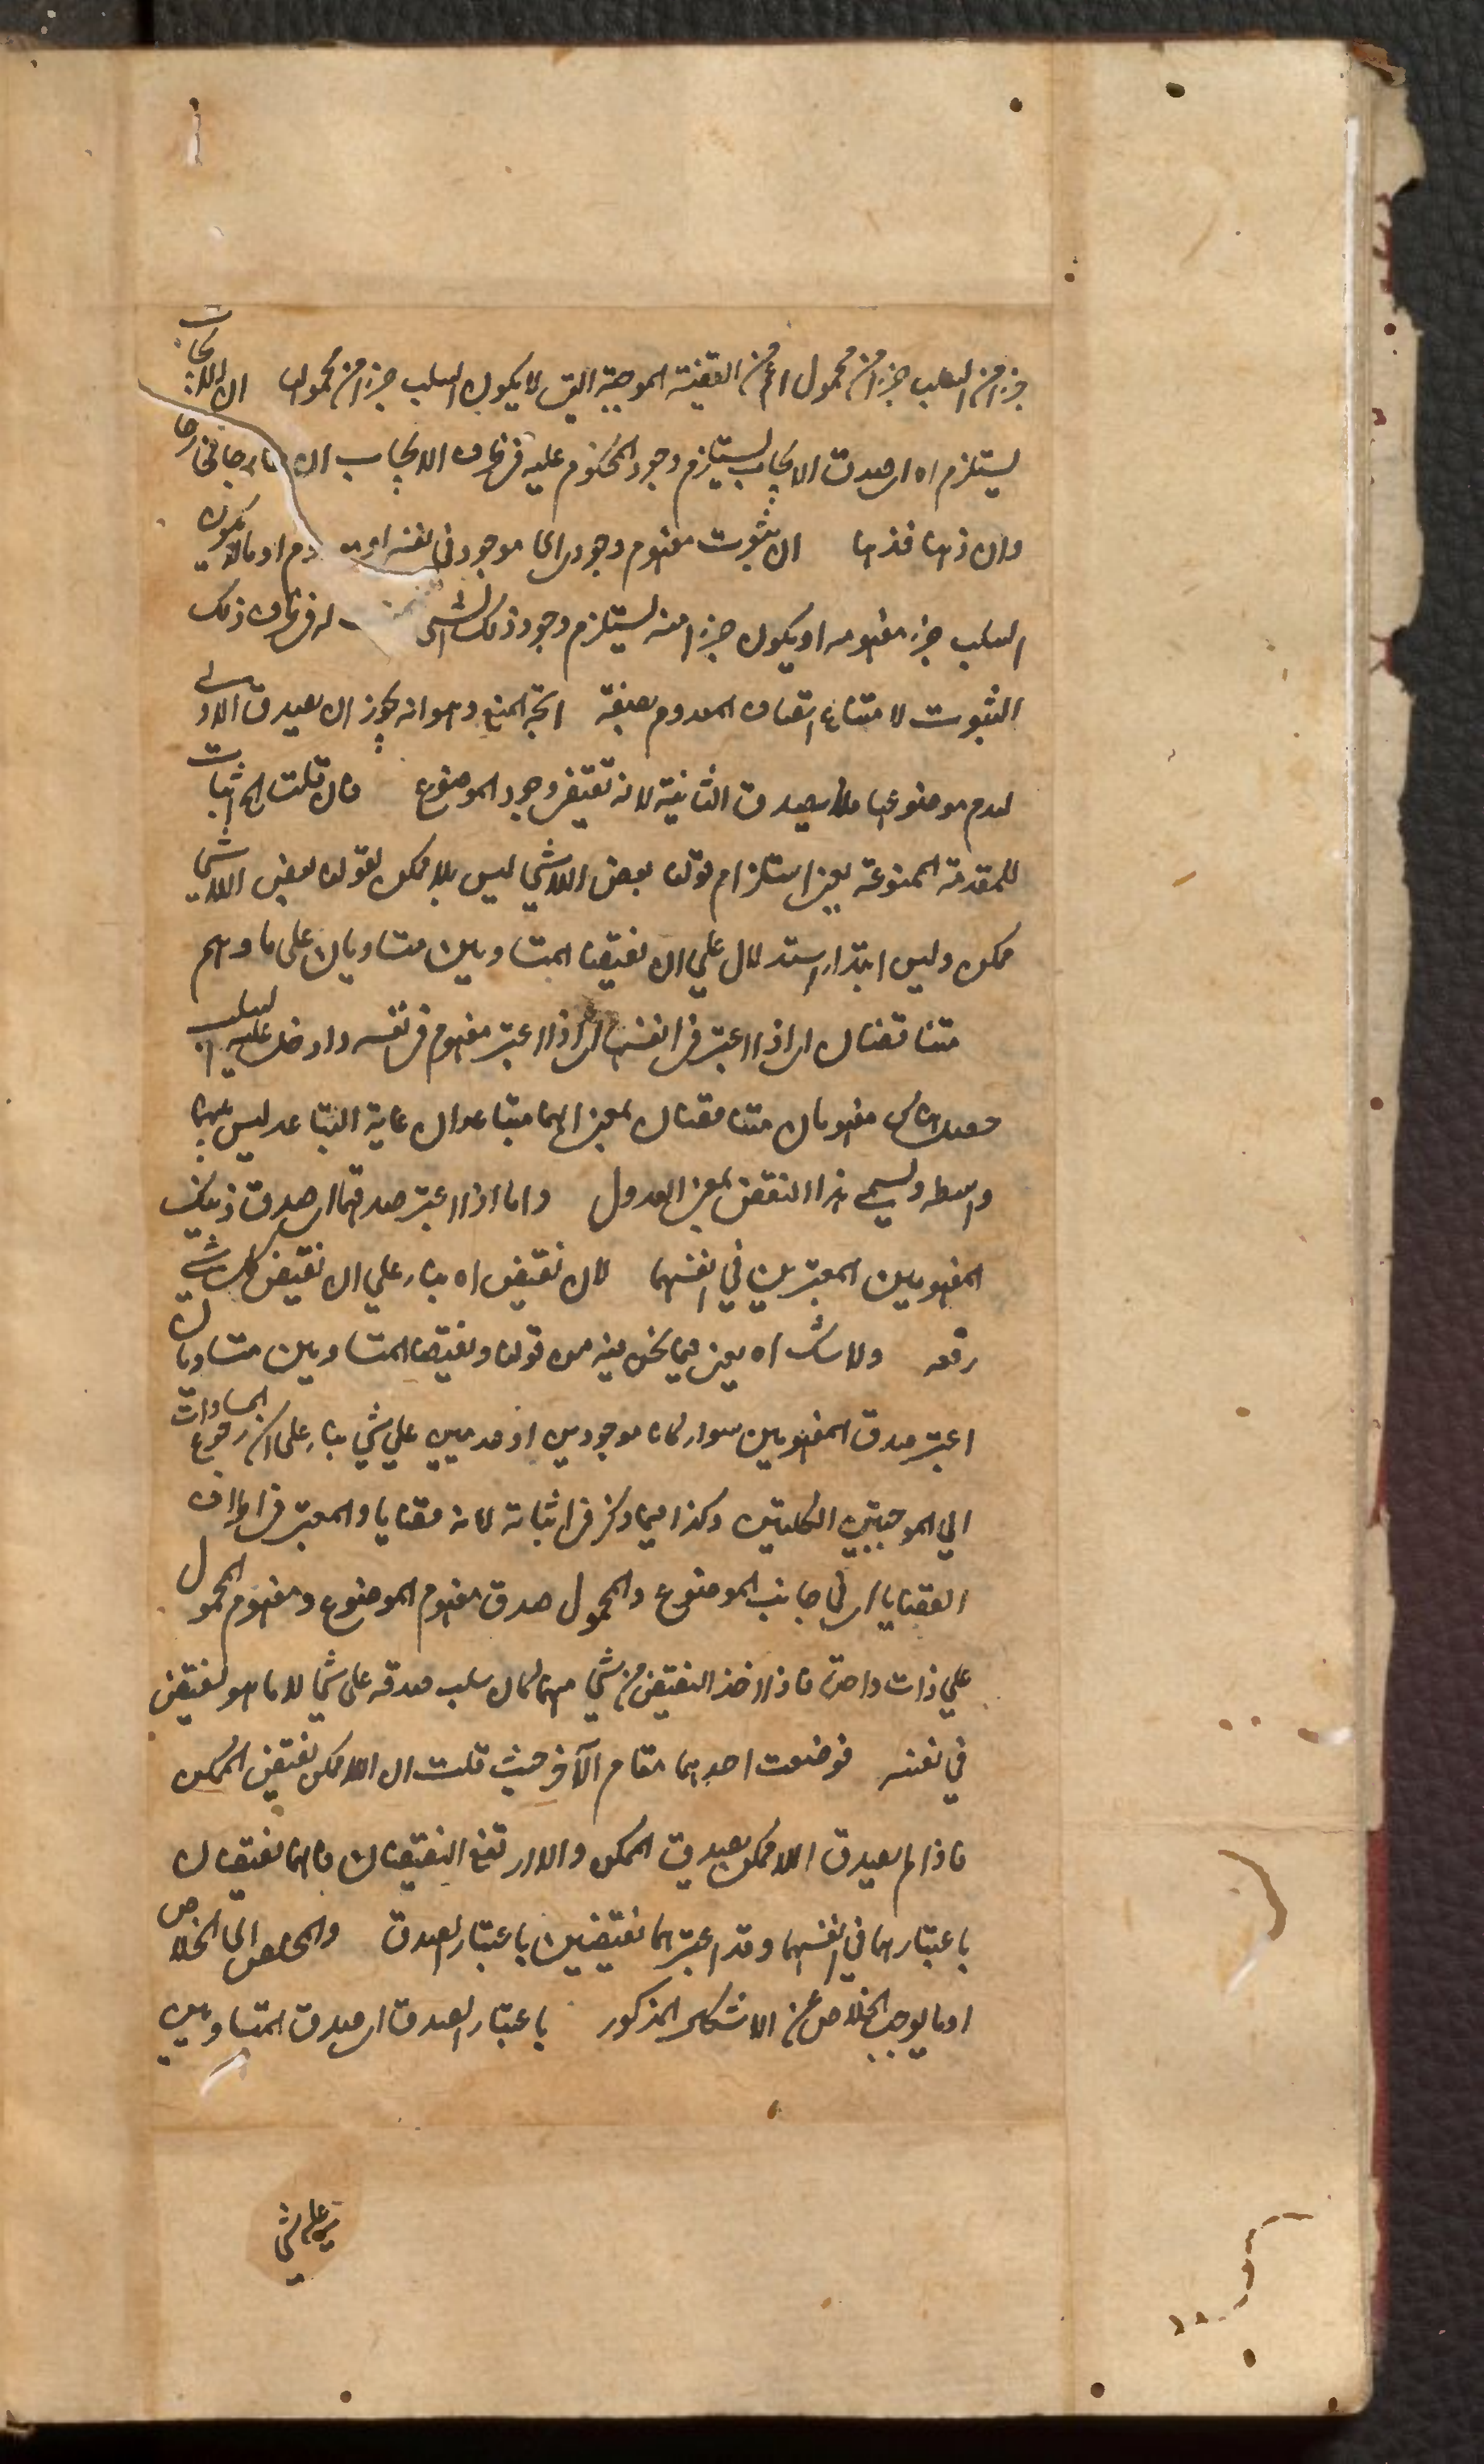 جزءا من السلب جزءا من محمول اعم من القضية الموجبة التي لا يكون السلب جزءا من محمولها ان الايجاب
يستلزم اه اى صدق الايجاب يستلزم وجود المحكوم عليه فى ظرف الايجاب ان خارجا فخارجا
وان ذهنا فذهنا ان ثبوت مفهوم وجودى اى موجود فى نفسه او اوما لا يكون
السلب جزء مفهومه او يكون جزءا منه يستلزم وجود ذلك الشئ له فى ظرف ذلك
الثبوت لامتناع اتصاف المعدوم بصفة اتجه المنع وهو انه يجوز ان يصدق الاولى
لعدم موضوعها فلا يصدق الثانية لانه تقتضى وجود الموضوع فان قلت اه اثبات
للمقدمة الممنوعة يعنى استلزام قولنا بعض اللاشئ ليس بلا ممكن لقولنا بعض اللاشئ
ممكن وليس ابتداء استدلال على ان نقيضا المتساويين متساويان على ما وهم
متناقضان اى اذا اعتبر فى انفسهما اى اذا اعتبر مفهوم فى نفسه وادخل عليه السلب
حصل هناك مفهومان متناقضان بمعنى انهما متباعدان غاية التباعد ليس بينهما
واسطه ويسمى هذا النقيض بمعنى العدول واما اذا اعتبر صدقهما اى صدق ذينك
المفهومين المعتبرين فى انفسهما لان نقيض اه بناء على ان نقيض كل شئ
رفعه ولا شك اه يعنى فيما نحن فيه من قولنا ونقيضا المتساويين متساويان
اعتبر صدق المفهومين سواء كانا موجودين او عدميين على شئ بناء على ان رجوع المساوات
الى الموجبتين الكليتين وكذا فيما ذكر فى اثباته لانه قضايا والمعتبر فى اطراف
القضايا اى فى جانب الموضوع والمحمول صدق مفهوم الموضوع ومفهوم المحمول
على ذات واحدة فاذا اخذ النقيض من شئ منها كان سلب صدقه على شئ لا ما هو نقيض
فى نفسه فوضعت احدهما مقام الآخر حيث قلت ان اللاممكن نقيض الممكن
فاذا لم يصدق اللاممكن يصدق الممكن والا ارتفع النقيضان فانهما نقيضان
باعتبارهما فى انفسهما وقد اعتبرهما نقيضين باعتبار الصدق والمخلص اى الخلاص
او ما يوجب الخلاص عن الاشكال المذكور باعتبار الصدق اى صدق المتساويين
على شئ